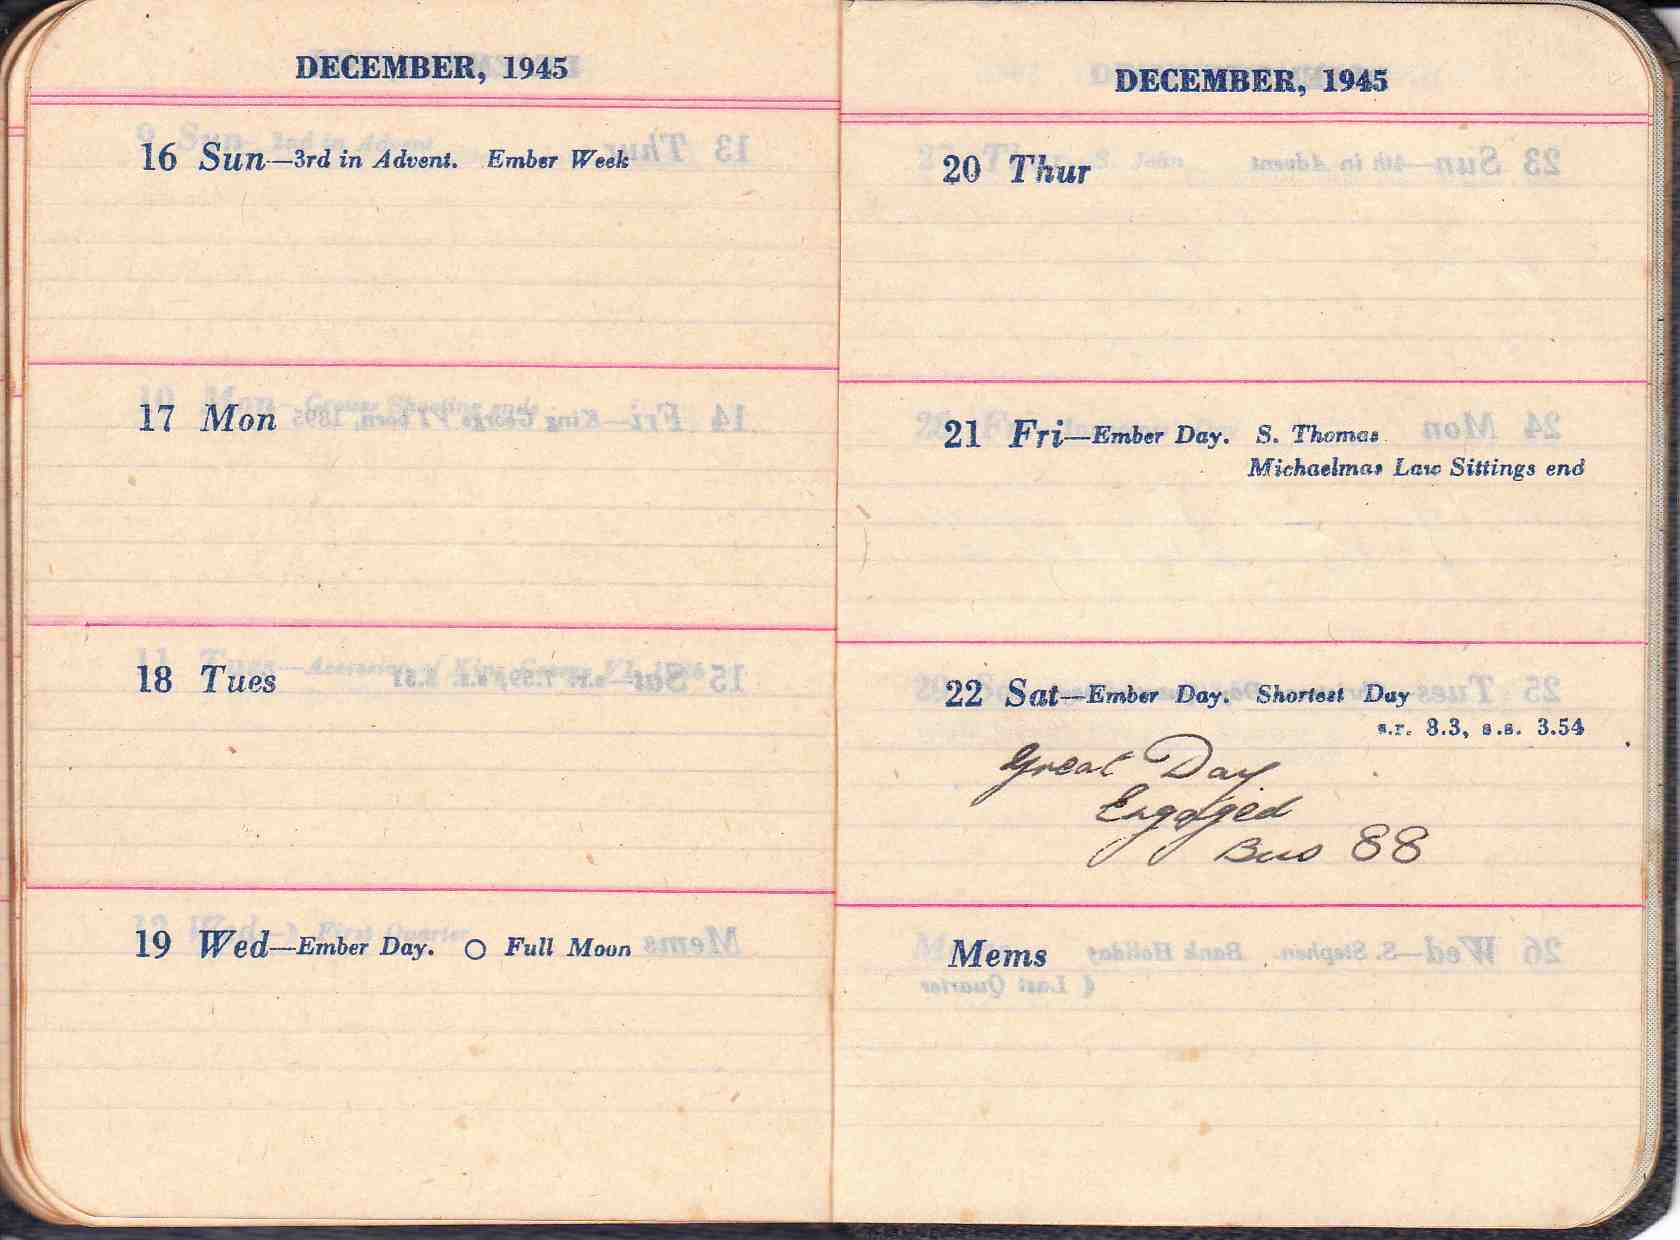 DECEMBER, 1945
16 Sun—3rd in Advent. Ember Week
17 Mon
18 Tues
19 Wed—Ember Day. ○ Full Moon
DECEMBER, 1945
20 Thur
21 Fri—Ember Day. S. Thomas
Michaelmas Law Sittings end
22 Sat—Ember Day. Shortest Day
s.r. 8.3, s.s. 3.54
Great Day
Engaged
Bus 88
Mems